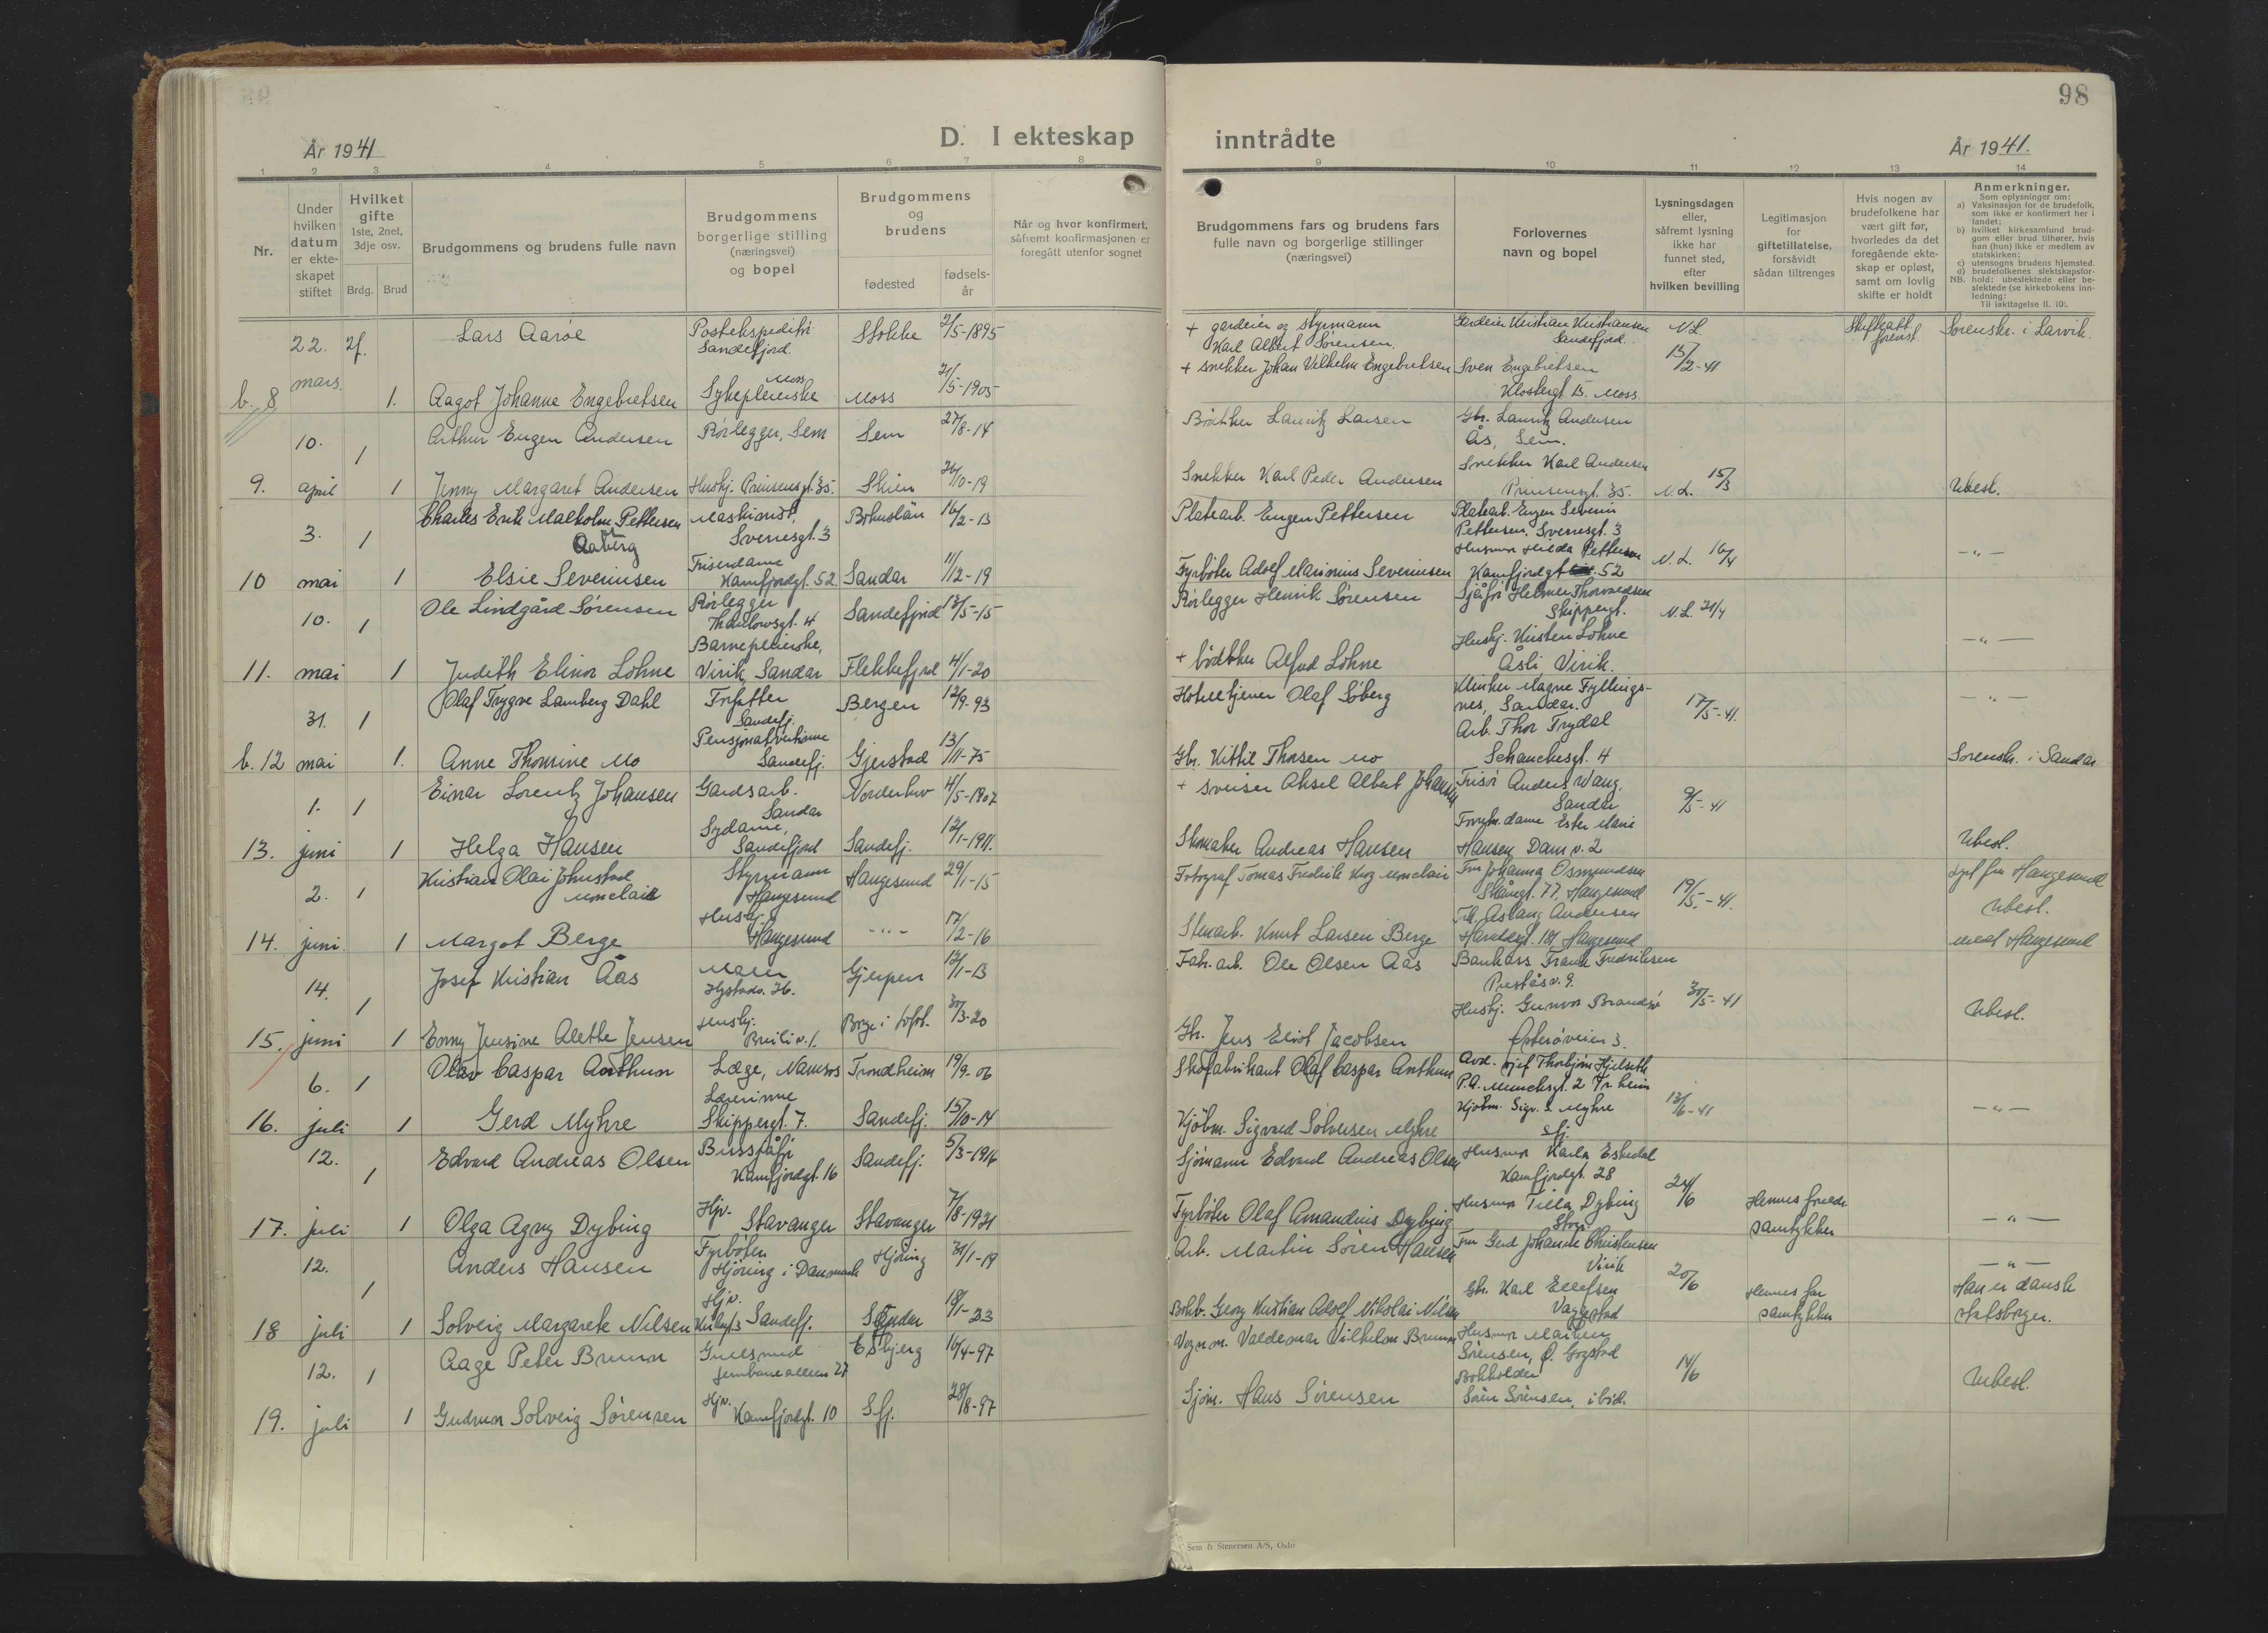 98
År 1941
D. I ekteskap inntrådte
År 1941.
1 2 3 4 5 6 7 8 9 10 11 12 13 14
Nr.
Under
hvilken
datum
er ekte-
skapet
stiftet
Hvilket
gifte
1ste, 2net,
3dje osv.
Brdg. Brud
Brudgommens og brudens fulle navn
Brudgommens
borgerlige stilling
(næringsvei)
og bopel
Brudgommens
og
brudens
fødested
fødsels-
år
Når og hvor konfirmert,
såfremt konfirmasjonen er
foregått utenfor sognet
Brudgommens fars og brudens fars
fulle navn og borgerlige stillinger
(næringsvei)
Forlovernes
navn og bopel
Lysningsdagen
eller,
såfremt lysning
ikke har
funnet sted,
efter
hvilken bevilling
Legitimasjon
for
giftetillatelse,
forsåvidt
sådan tiltrenges
Hvis nogen av
brudefolkene har
vært gift før,
hvorledes da det
foregående ekte-
skap er opløst,
samt om lovlig
skifte er holdt
Anmerkninger.
Som oplysninger om:
a) Vaksinasjon for de brudefolk,
som ikke er konfirmert her i
landet;
b) hvilket kirkesamfund brud-
gom eller brud tilhører, hvis
han (hun) ikke er medlem av
statskirken;
c) utensogns brudens hjemsted.
d) brudefolkenes slektskapsfor-
NB. hold: ubeslektede eller be-
slektede (se kirkebokens inn-
ledning:
Til iakttagelse II. 10).
22. 2f. Lars Aarøe Postekspeditør Stokke 2/5-1895
Sandefjord.
+ gardeier og styrmann Gardeier Kristian Kristiansen N.L. Skifteatt. Sorenskr. i Larvik.
Karl Albert Sørensen. Sandefjord.
mars. Moss
b. 8 1. Aagot Johanne Engebretsen Sykepleierske Moss 21/5-1905
+ snekker Johan Vilhelm Engebretsen Sven Engebretsen 15/2-41
Klostergt 15. Moss
10. 1 Arthur Eugen Andersen Rørlegger, Sem Sem 27/8-14
Bødtker Lauritz Larsen Gbr. Lauritz Andersen
Ås, Sem.
9. april 1 Jenny Margaret Andersen Huskj. Prinsensgt. 35. Skien 26/10-19
Snekker Karl Peder Andersen Snekker Karl Andersen
Prinsensgt. 35. N.L. 15/3 Ubesl.
3. 1 Charles Erik Malkolm Pettersen Maskinist, Bohuslän 16/2-13
Aaberg Sverresgt. 3
Platearb. Eugen Pettersen Platearb. Eugen Severin
Pettersen, Sverresgt. 3
10 mai 1 Elsie Severinsen Friserdame Sandar 11/12-19
Kamfjordgt. 52
Fyrbøter Adolf Marinius Severinsen Husmor Hilda Pettersen N.L. 16/4 -"-
Kamfjordgt. 52
10. 1 Ole Lindgård Sørensen Rørlegger Sandefjord 12/5-15
Thaulowsgt. 4
Rørlegger Henrik Sørensen Sjåfør Helmer Thorvaldsen
Skippergt. N.L. 21/4
11. mai 1 Judith Elinor Lohne Barnepleierske, Flekkefjord 4/1-20
Virik, Sandar
+ bødtker Alfred Lohne Huskj. Kirsten Lohne -"-
Åsli Virik.
31. 1 Olaf Trygve Lamberg Dahl Forfatter Bergen 12/9-93
Sandefj.
Hotelltjener Olaf Søberg Klinker Magne Fyllings-
nes, Sandar. 17/5-41. -"-
b. 12 mai 1. Anne Thomine Mo Pensjonatvertinne Gjerstad 13/11-75
Sandefj.
Gbr. Kittil Thorsen Mo Arb. Thor Trydal
Schanchesgt. 4 Sorenskr. i Sandar
1. 1 Einar Lorentz Johansen Gardsarb. Norderhov 4/5-1907
Sandar
+ sveiser Aksel Albert Johansen Frisør Anders Wang,
Sandar 9/5-41
13. juni 1 Helga Hansen Sydame, Sandefj. 12/1-1911.
Sandefjord
Skomaker Andreas Hansen Forretn.dame Ester Marie
Hansen Dam v. 2 Ubesl.
2. 1 Kristian Olai Johnstad Styrmann Haugesund 29/1-15
Monclair Haugesund
Fotograf Tomas Fredrik Krog Monclair Fru Johanna Osmundsen Lyst fra Haugesund
Skåregt. 77, Haugesund 19/5-41. Ubesl.
14. juni 1 Margot Berge Huskj. -"- 17/2-16
Haugesund
Stenarb. Knut Larsen Berge Frk. Aslaug Andersen
Haraldsgt. 181, Haugesund meldt Haugesund
14. 1 Josef Kristian Aas Maler Gjerpen 12/1-13
Fabr.arb. Ole Olsen Aas Bankass. Frank Fredriksen
Preståsv. 9.
15. juni 1 Enny Jensine Alette Jensen Huskj. Borge i Lofot. 30/3-20
Gbr. Jens Eliot Jacobsen Huskj. Gunvor Brandsø 30/5-41 Ubesl.
Østerøveien 3.
6. 1 Olav Caspar Anthun Læge, Namsos Trondheim 19/9-06
Skofabrikant Olaf Caspar Anthun Avd. sjef Thorbjørn Hjelseth
P.A. Munchsgt. 2 Tr.heim
16. juli 1 Gerd Myhre Lærerinne Sandefj. 15/10-14
Skippergt. 7.
Kjøbm. Sigvard Solversen Myhre Kjøbm. Sigv. S. Myhre 13/6-41 -"-
Sfj.
12. 1 Edvard Andreas Olsen Bussjåfør Sandefj. 5/3-1916
Kamfjordgt. 16
Sjømann Edvard Andreas Olsen Husmor Karla Eskedal
Kamfjordgt. 28
17. juli 1 Olga Agny Dybing Hjv. Stavanger 7/8-1921
Stavanger
Fyrbøter Olaf Amandius Dybing Husmor Tilla Dybing 24/6 Hennes foreldr. -"-
samtykker
12. 1 Anders Hansen Fyrbøter Hjøring 31/1-19
Hjøring i Danmark
Arb. Martin Søren Hansen Fru Gerd Johanne Christensen -"-
Virik
18 juli 1 Solveig Margarete Nilsen Hjv. Sandar 18/1-23
Sandefj.
Bokh. Georg Kristian Adolf Nikolai Nilsen Gbr. Karl Ellefsen 20/6 Hennes far Han er dansk
samtykker statsborger.
12. 1 Aage Peter Brunn Gullsmed Esbjerg 16/4-97
Jernbanealleen 27
Vognm. Valdemar Vilhelm Brunn Husmor Mailen
Sørensen, Ø. Gogstad
19. juli 1 Gudrun Solveig Sørensen Hjv. Sfj. 28/8-97
Kamfjordgt. 10
Sjøm. Hans Sørensen Bokholder 14/6 Ubesl.
Søren Sørensen, ibid.
Sem & Stenersen A/S, Oslo